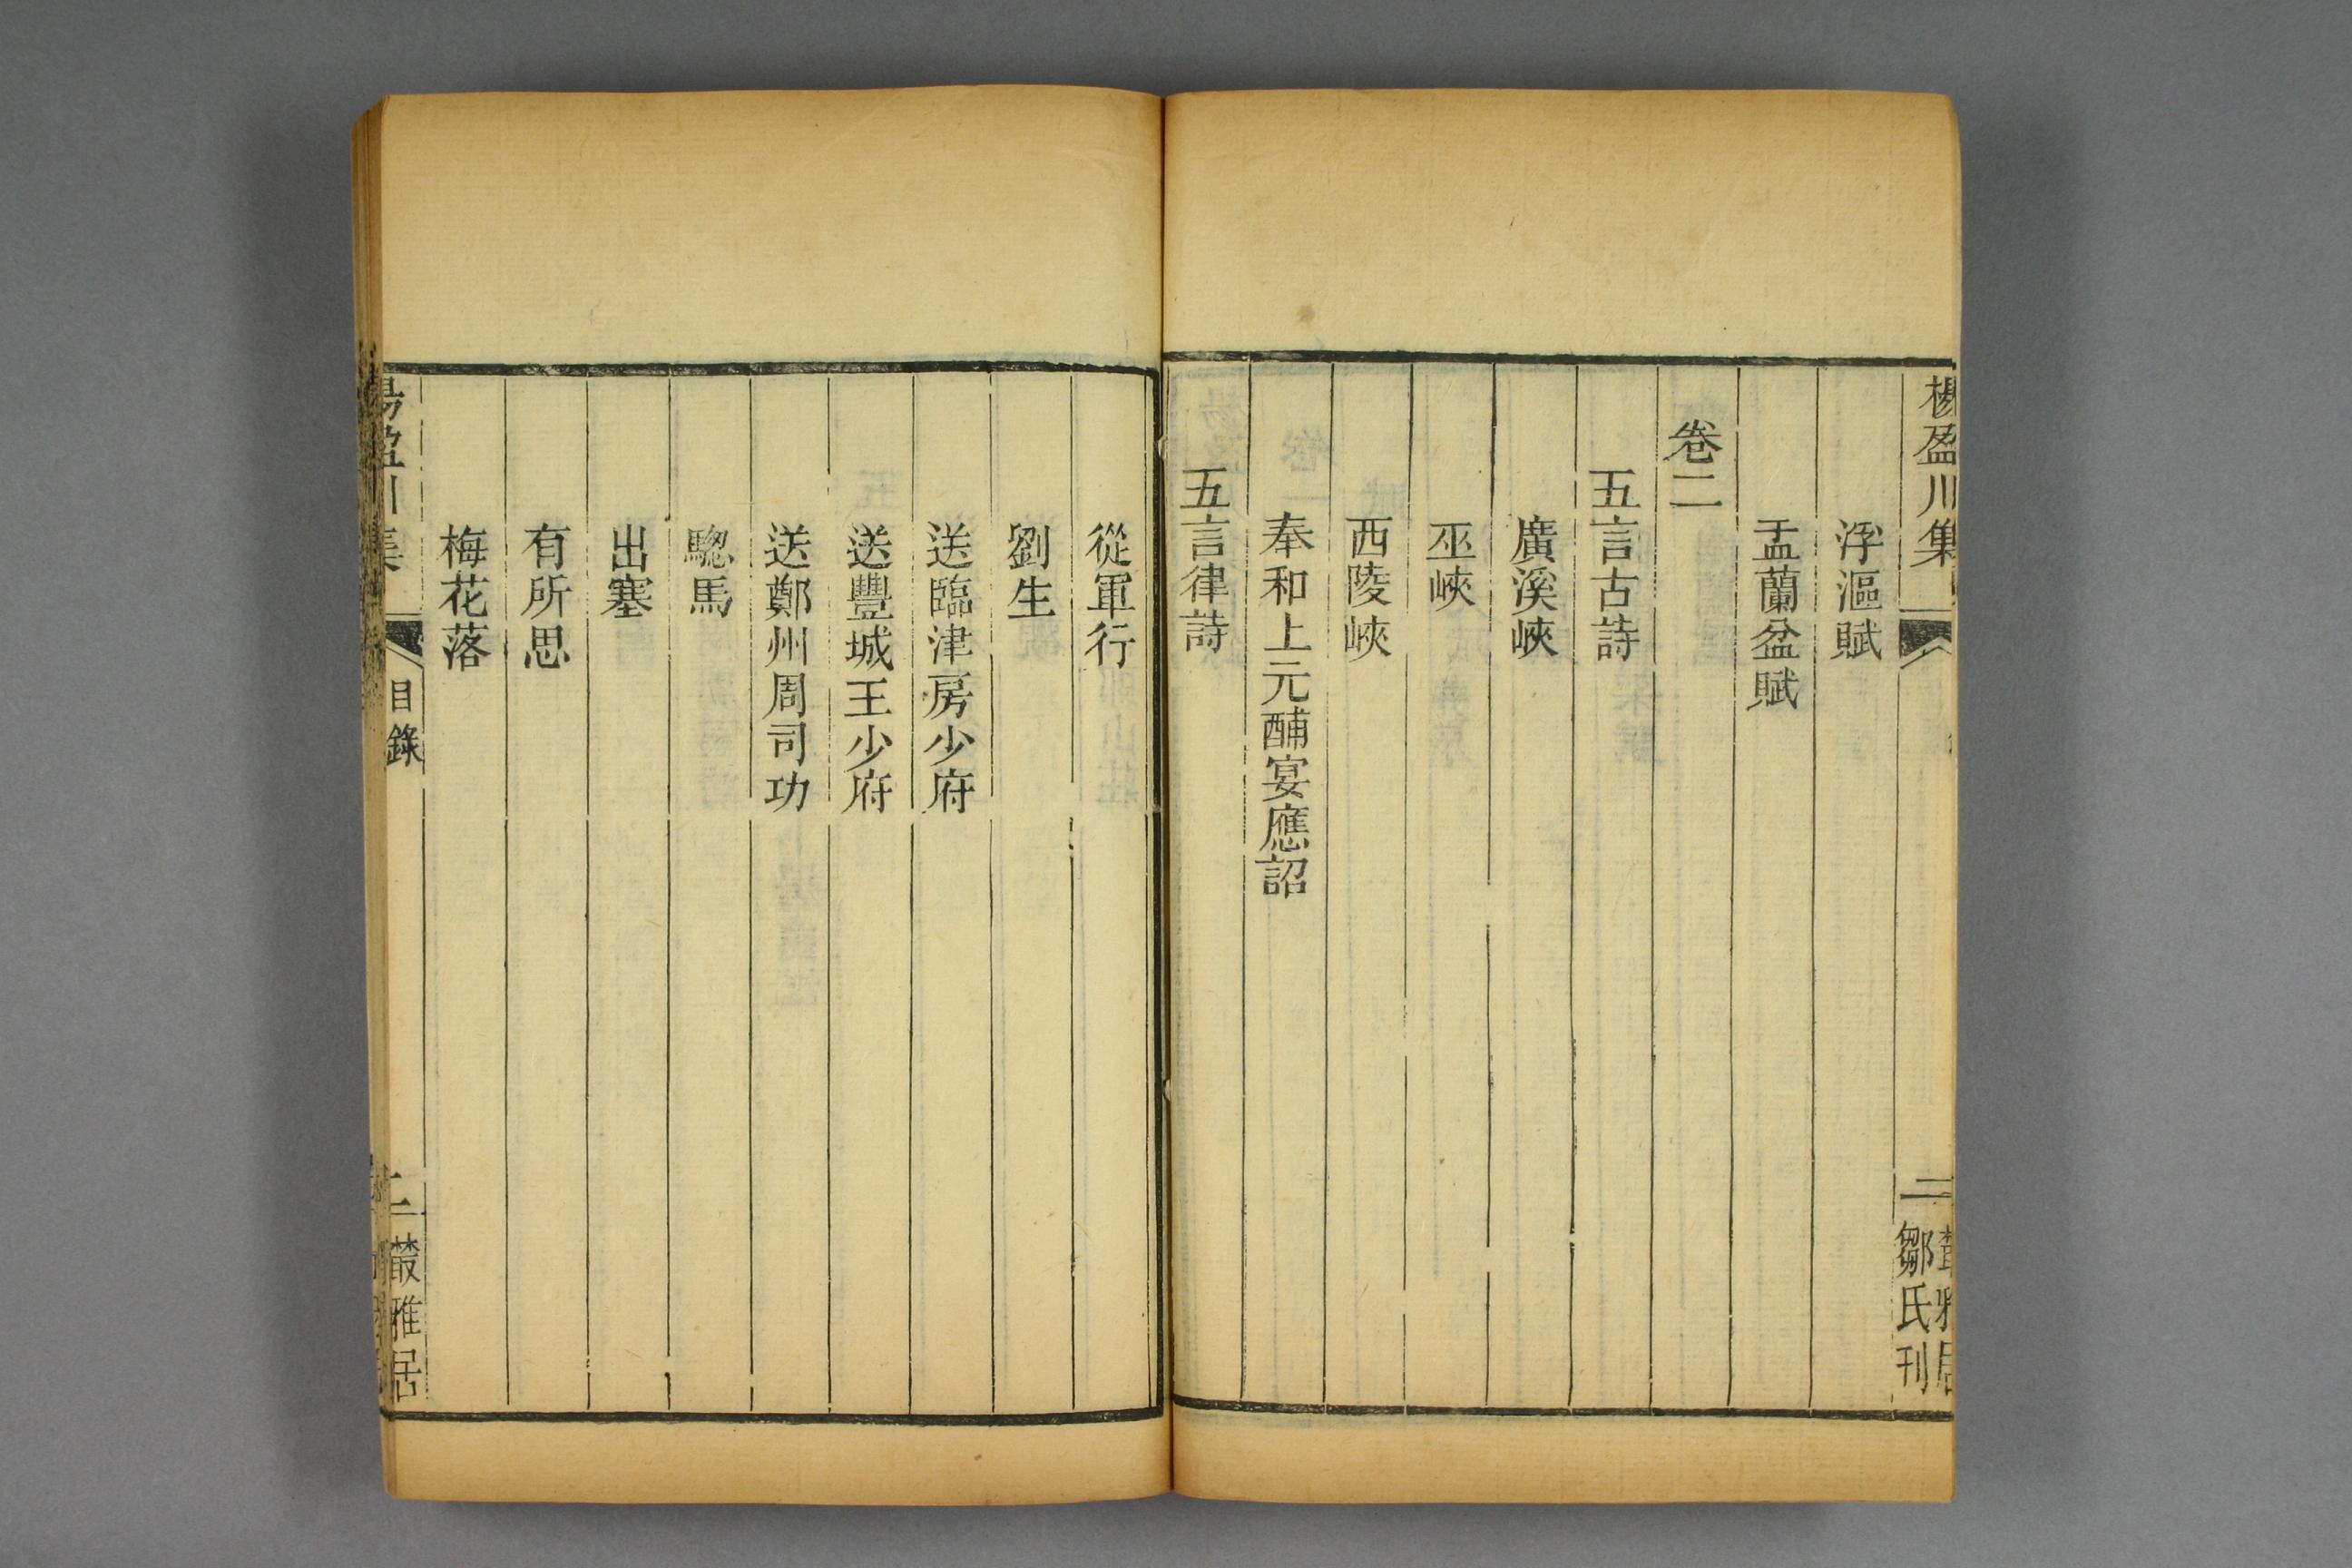 楊盈川集
二
叢雅居
鄒氏刊
浮漚賦
盂蘭盆賦
卷二
五言古詩
廣溪峽
巫峽
西陵峽
奉和上元酺宴應詔
五言律詩
從軍行
劉生
送臨津房少府
送豐城王少府
送鄭州周司功
驄馬
出塞
有所思
梅花落
楊盈川集
目錄
叢雅居